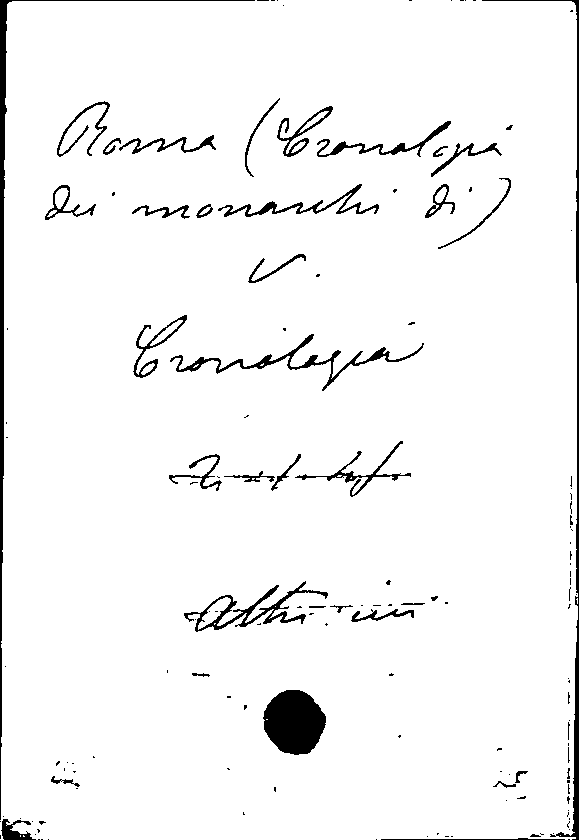 Roma (Cronologia
dei monarchi di)
V.
Cronologia
Altri ivi